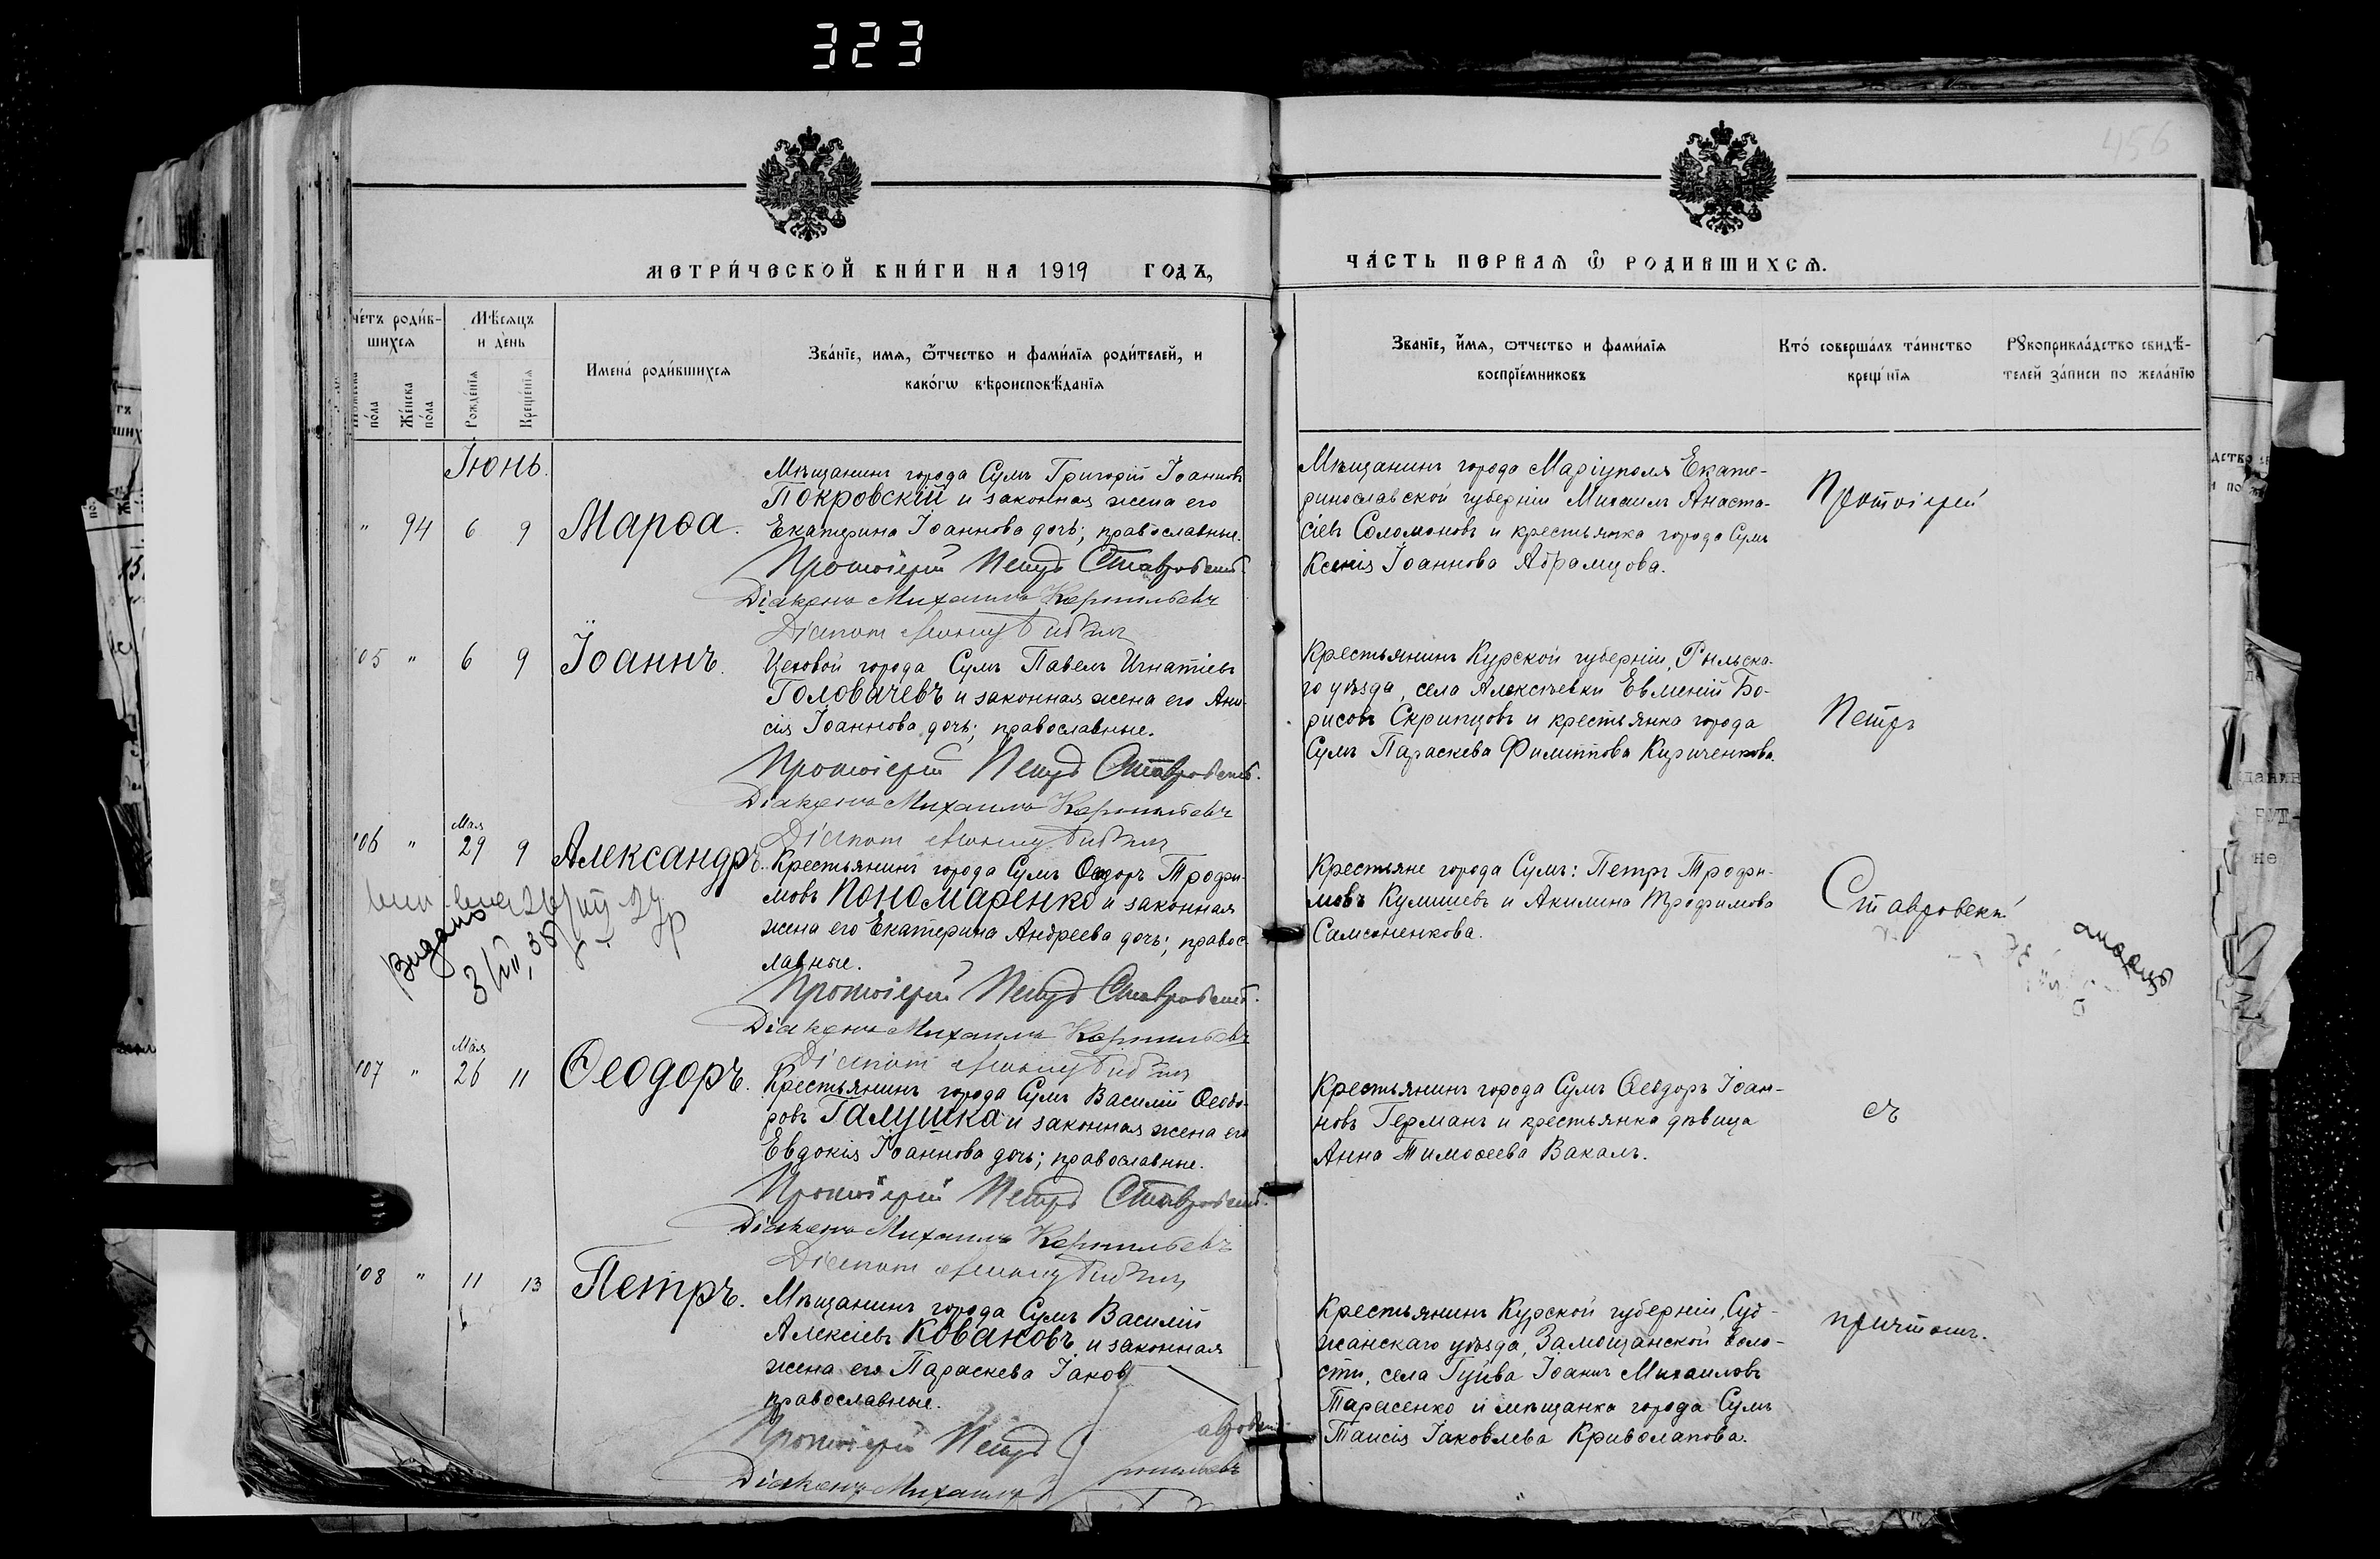 323
456
МЕТРИ́ЧЕСКОЙ КНИ́ГИ НА 1919 ГОДЪ,
ЧА́СТЬ ПЕРВАЯ Ѡ РОДИВШИХСѦ.
че́тъ роди́в-
шихсѧ
по́ла
Же́нска
по́ла
Мѣ́сѧцъ
и де́нь
Рожде́нїѧ
Креще́нїѧ
Имена́ роди́вшихсѧ
Зва́нїе, имѧ, ѻ҆́тчество и фами́лїѧ роди́телей, и
како́гѡ вѣроисповѣ́данїѧ
Званїе, и҆́мѧ, ѻтчество и фами́лїѧ
воспрїе́мниковъ
Кто́ соверша́лъ та́инство
креще́нїѧ
Рꙋкоприкла́дство свидѣ́-
телей за́писи по жела́нїю
Іюнь.
" 94 6 9 Марѳа.
Мѣщанинъ города Сумъ Григорій Іоанновъ
Покровскій и законная жена его
Екатерина Іоаннова дочь; православные.
Протоіерей Петръ Ставровскій.
Діаконъ Михаилъ
Мѣщанинъ города Маріуполя Екате-
ринославской губерніи Михаилъ Анаста-
сіевъ Соломоновъ и крестьянка города Сумъ
Ксенія Іоаннова Абрамцова.
Протоіерей
'05 " 6 9 Іоаннъ.
Цеховой города Сумъ Павелъ Игнатіевъ
Головачевъ и законная жена его Ани-
сія Іоаннова дочь; православные.
Протоіерей Петръ Ставровскій.
Діаконъ Михаилъ
Крестьянинъ Курской губерніи, Рыльска-
го уѣзда, села Алексѣевки Евменій Бо-
рисовъ Скрипцовъ и крестьянка города
Сумъ Параскева Филиппова Кириченкова.
Петръ
Мая
'06 " 29 9 Александръ.
Крестьянинъ города Сумъ Ѳеодоръ Трофи-
мовъ Пономаренко и законная
жена его Екатерина Андреева дочь; правос-
лавные.
Протоіерей Петръ Ставровскій.
Діаконъ Михаилъ
Видано
Крестьяне города Сумъ: Петръ Трофи-
мовъ Кулишевъ и Акилина Трофимова
Самсоненкова.
Ставровскій
Мая
'07 " 26 11 Ѳеодоръ.
Крестьянинъ города Сумъ Василій Ѳеодо-
ровъ Галушка и законная жена его
Евдокія Іоаннова дочь; православные.
Протоіерей Петръ Ставровскій.
Діаконъ Михаилъ
Крестьянинъ города Сумъ Ѳеодоръ Іоан-
новъ Германъ и крестьянка дѣвица
Анна Тимоѳеева Вакалъ.
съ
'08 " 11 13 Петръ.
Мѣщанинъ города Сумъ Василій
Алексіевъ Ковановъ и законная
жена его Параскева Іаков
православные.
Протоіерей Петръ
Діаконъ Михаилъ
Крестьянинъ Курской губерніи, Суд-
жанскаго уѣзда, Замощанской воло-
сти, села Гуйва Іоаннъ Михаиловъ
Тарасенко и мѣщанка города Сумъ
Таисія Іаковлева Криволапова.
причтомъ.